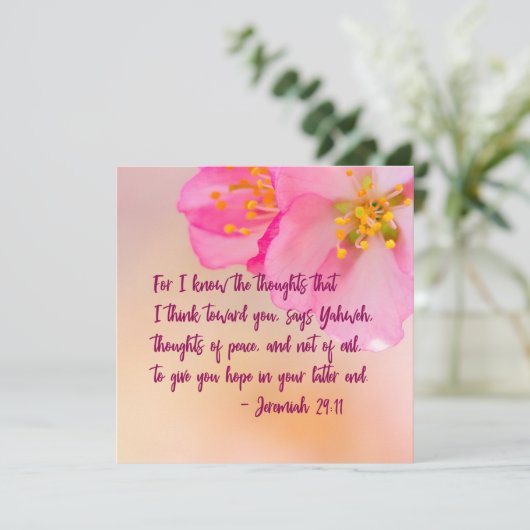 For I know the thoughts that
I think toward you, says Yahweh,
thoughts of peace, and not of evil,
to give you hope in your latter end.
- Jeremiah 29:11